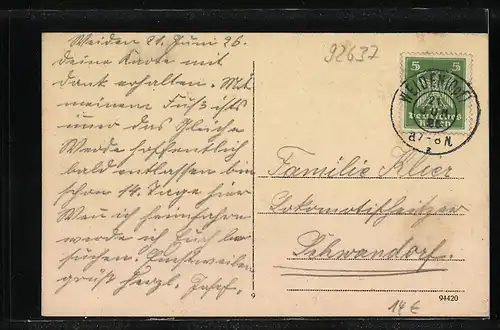 Weiden 21. Juni 26.
deine Karte mit
Dank erhalten. Mit
meinem Fuß ists
immer das Gleiche
Werde hoffentlich
bald entlassen bin
schon 14. Tage hier
Wenn ich heimfahre
werde ich Euch be
suchen. Einstweilen
grüßt herzl. Josef.
92637
5 5
Deutsches
Reich
WEIDEN
21
N.
Familie Klier
Lokomotivheizer
Schwandorf.
9
94420
14 €